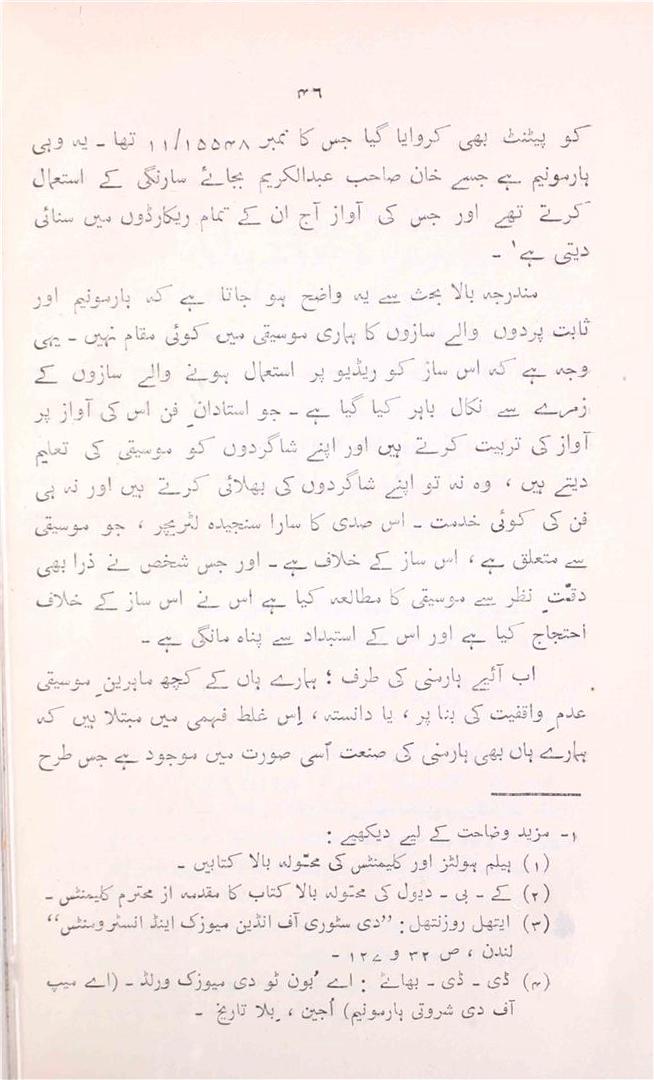 ۴۶
کو پیٹنٹ بھی کروایا گیا جس کا نمبر ۱۱/۱۵۵۴۸ تھا ۔ یہ وہی
ہارمونیم ہے جسے خان صاحب عبدالکریم بجائے سارنگی کے استعمال
کرتے تھے اور جس کی آواز آج ان کے تمام ریکارڈوں میں سنائی
دیتی ہے۱ ۔
مندرجہ بالا بحث سے یہ واضح ہو جاتا ہے کہ ہارمونیم اور
ثابت پردوں والے سازوں کا ہماری موسیقی میں کوئی مقام نہیں ۔ یہی
وجہ ہے کہ اس ساز کو ریڈیو پر استعمال ہونے والے سازوں کے
زمرے سے نکال باہر کیا گیا ہے ۔ جو استادانِ فن اس کی آواز پر
آواز کی تربیت کرتے ہیں اور اپنے شاگردوں کو موسیقی کی تعلیم
دیتے ہیں ، وہ نہ تو اپنے شاگردوں کی بھلائی کرتے ہیں اور نہ ہی
فن کی کوئی خدمت ۔ اس صدی کا سارا سنجیدہ لٹریچر ، جو موسیقی
سے متعلق ہے ، اس ساز کے خلاف ہے ۔ اور جس شخص نے ذرا بھی
دقتِ نظر سے موسیقی کا مطالعہ کیا ہے اس نے اس ساز کے خلاف
احتجاج کیا ہے اور اس کے استبداد سے پناہ مانگی ہے ۔
اب آئیے ہارمنی کی طرف ؛ ہمارے ہاں کے کچھ ماہرینِ موسیقی
عدم واقفیت کی بنا پر ، یا دانستہ ، اِس غلط فہمی میں مبتلا ہیں کہ
ہمارے ہاں بھی ہارمنی کی صنعت اُسی صورت میں موجود ہے جس طرح
۱۔ مزید وضاحت کے لیے دیکھیے :
(۱) ہیلم ہولٹز اور کلیمنٹس کی محولہ بالا کتابیں ۔
(۲) کے ۔ بی ۔ دیول کی محولہ بالا کتاب کا مقدمہ از محترم کلیمنٹس ۔
(۳) ایتھل روزنتھل : ”دی سٹوری آف انڈین میوزک اینڈ انسٹرومنٹس“
لندن ، ص ۳۲ و ۱۲۷ ۔
(۴) ڈی ۔ ڈی ۔ بھانے : اے بُون ٹو دی میوزک ورلڈ ۔ (اے میپ
آف دی شروتی ہارمونیم) اُجین ، بِلا تاریخ ۔